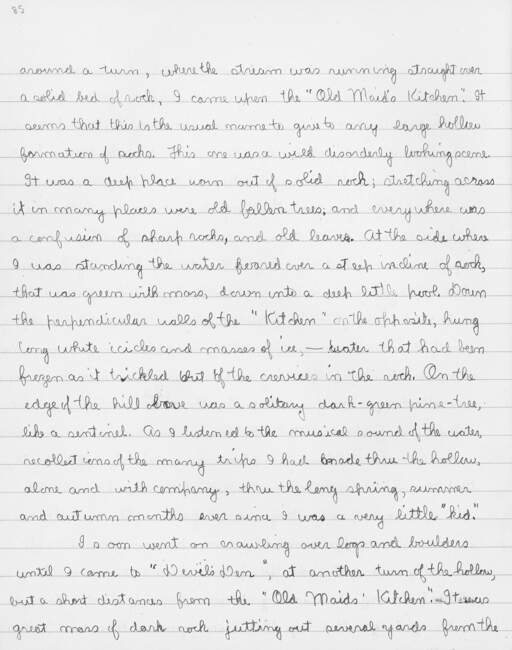 85
around a turn, where the stream was running straight over
a solid bed of rock, I came upon the "Old Maid's Kitchen". It
seems that this is the usual name to give to any large hollow
formation of rocks. This one was a wild disorderly looking scene.
It was a deep place worn out of solid rock; stretching across
it in many places were old fallen trees; and everywhere was
a confusion of sharp rocks, and old leaves. At the side where
I was standing the water poured over a steep incline of rock,
that was green with moss, down into a deep little pool. Down
the perpendicular walls of the "Kitchen" on the opposite, hung
long white icicles and masses of ice, — water that had been
frozen as it trickled out of the crevices in the rock. On the
edge of the hill above was a solitary dark-green pine-tree,
like a sentinel. As I listened to the musical sound of the water,
recollections of the many trips I had made thru the hollow,
alone and with company, thru the long spring, summer
and autumn months ever since I was a very little "kid."
I soon went on crawling over logs and boulders
until I came to "Devil's Den", at another turn of the hollow,
but a short distances from the "Old Maids' Kitchen". It was
great mass of dark rock jutting out several yards from the